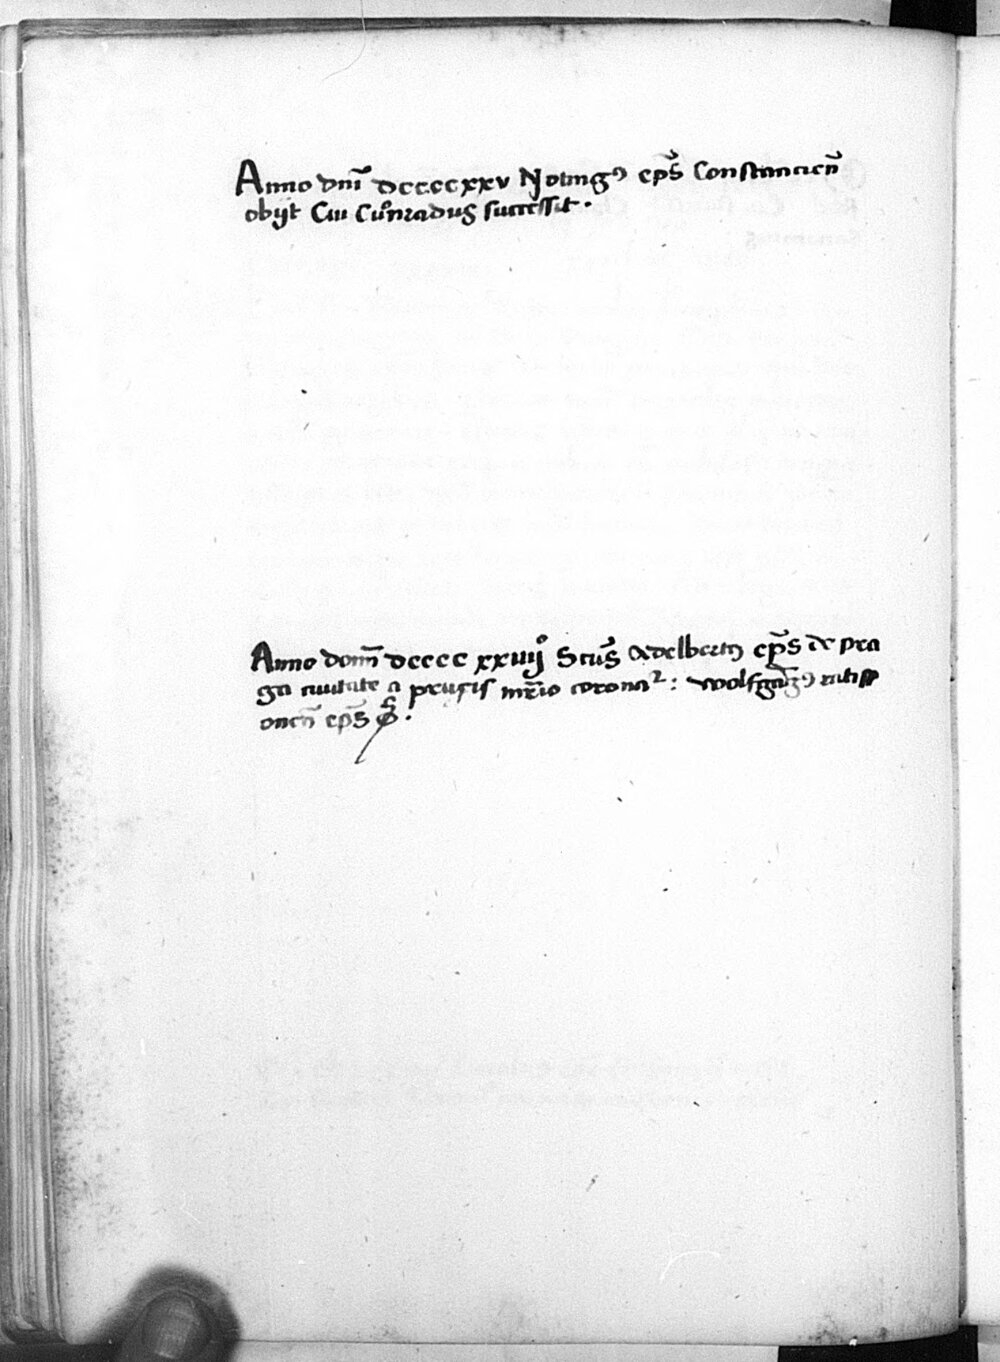 Anno dnī dccccxxv Notingꝰ ep̄s Constancien̄
obijt Cui Cůnradus successit .
Anno domī dcccc xxiiijͦ Sctūs Adelbertꝰ ep̄s de pra
ga ciuitate a prusis mr̄io coronaᷣ : wolfgāgꝰ ratisp
onen̄ ep̄s